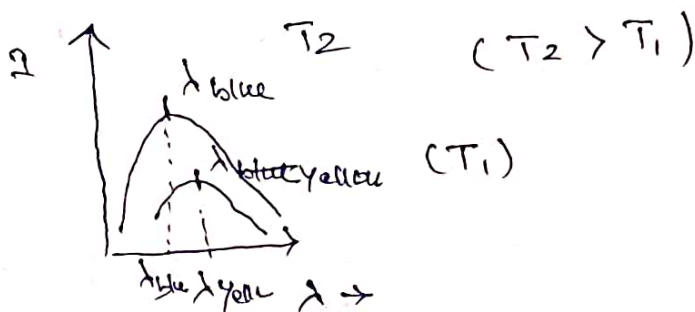 T2 (T2 > T1)
I
λ blue
λ yellow (T1)
λ blue λ yellow λ →